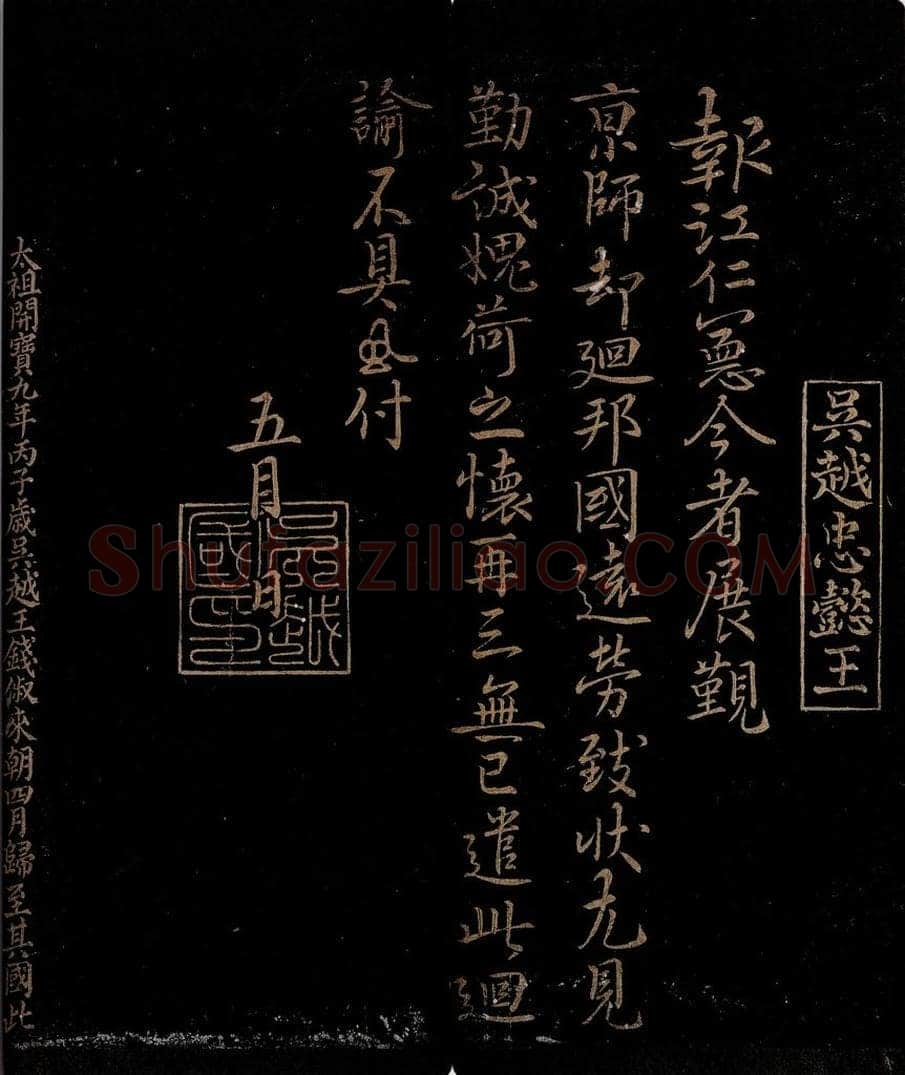 吳越忠懿王
報江仁憲今者展覲
京師却廻邦國遠勞致狀尤見
勤誠媿荷之懷再三無已遣此廻
諭不具 付
五月 日
吳越國王
太祖開寶九年丙子歲吳越王錢俶來朝四月歸至其國此
Shufaziliao.COM